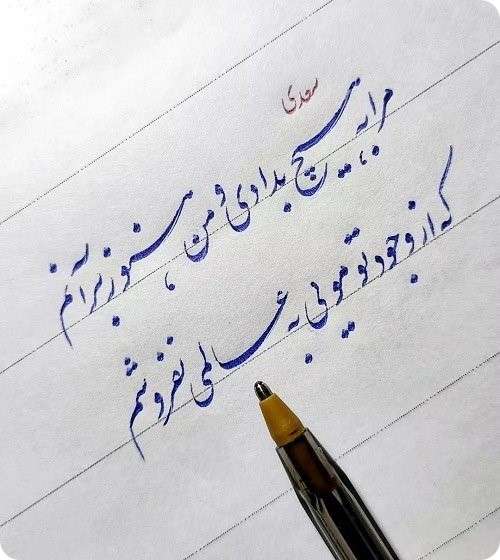 سعدی
مرا به هیچ بدادی و من هنوز بر آنم
که از وجود تو مویی به عالمی نفروشم